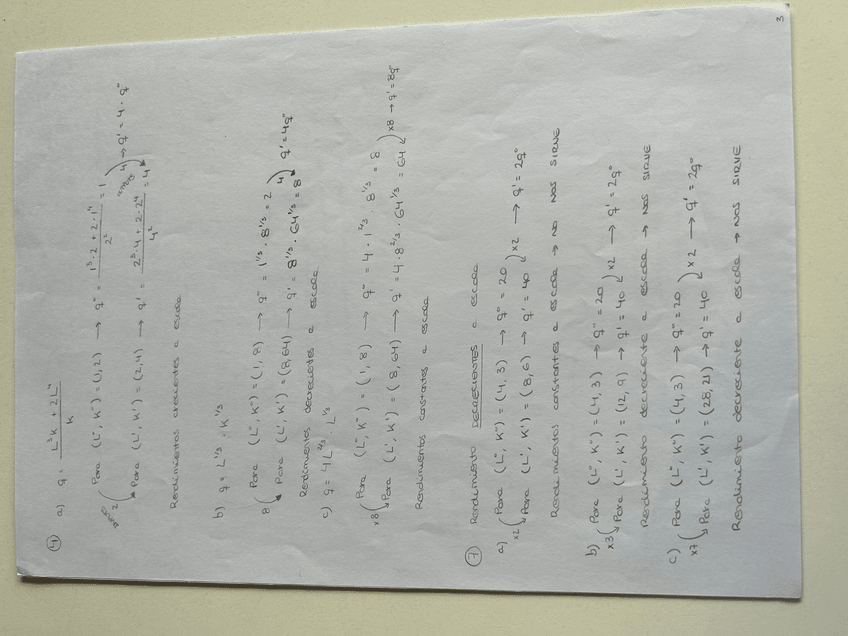 ④ a) q = (L³K + 2L⁴) / K
Para (L", K") = (1,2) → q" = (1³·2 + 2·1⁴) / 2² = 1
2 Para (L', K') = (2,4) → q' = (2³·4 + 2·2⁴) / 4² = 4 → q' = 4·q"
Rendimientos crecientes a escala
b) q = L^1/3 · K^1/3
8 Para (L", K") = (1, 8) → q" = 1^1/3 · 8^1/3 = 2
Para (L', K') = (8,64) → q' = 8^1/3 · 64^1/3 = 8 4 q' = 4q"
Rendimientos decrecientes a escala
c) q = 4L^2/3 · L^1/3
x8 Para (L", K") = (1, 8) → q" = 4 · 1^2/3 · 8^1/3 = 8
Para (L', K') = (8, 64) → q' = 4·8^2/3 · 64^1/3 = 64 x8 → q' = 8q"
Rendimientos constantes a escala
⑦ Rendimiento DECRECIENTES a escala
a) Para (L", K") = (4, 3) → q" = 20
x2 Para (L', K') = (8, 6) → q' = 40 x2 → q' = 2q"
Rendimientos constantes a escala → NO NOS SIRVE
b) Para (L", K") = (4, 3) → q" = 20
x3 Para (L', K') = (12, 9) → q' = 40 x2 → q' = 2q"
Rendimiento decreciente a escala → NOS SIRVE
c) Para (L", K") = (4, 3) → q" = 20
x7 Para (L', K') = (28, 21) → q' = 40 x2 → q' = 2q"
Rendimiento decreciente a escala → NOS SIRVE
3